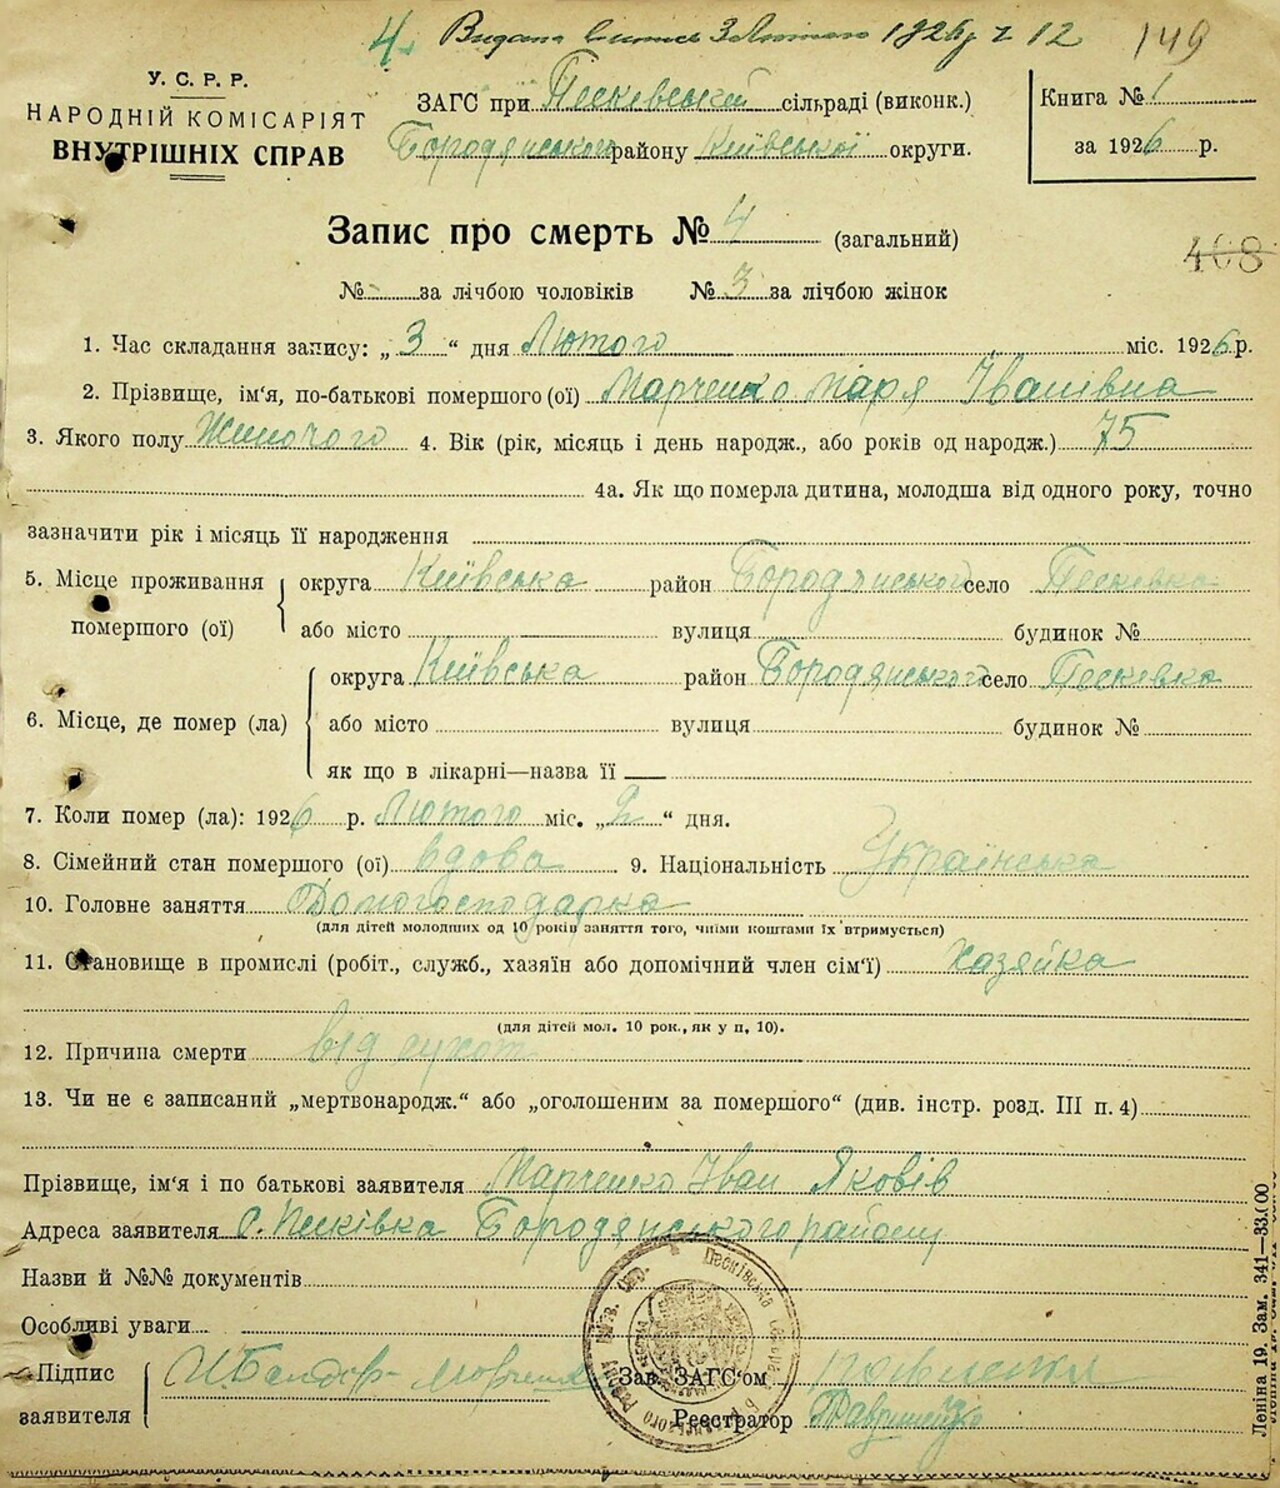 4. Видана випис 3 Лютого 1926 р. № 12 149
У. С. Р. Р.
НАРОДНІЙ КОМІСАРІЯТ
ВНУТРІШНІХ СПРАВ
ЗАГС при Песківській сільраді (виконк.)
Бородянського району Київської округи.
Книга № 1
за 1926 р.
Запис про смерть № 4 (загальний)
408
№ - за лічбою чоловіків № 3 за лічбою жінок
1. Час складання запису: „3“ дня Лютого міс. 1926 р.
2. Прізвище, ім'я, по-батькові помершого (ої) Марченко Маря Іванівна
3. Якого полу Жиночого 4. Вік (рік, місяць і день народж., або років од народж.) 75
4а. Як що померла дитина, молодша від одного року, точно
зазначити рік і місяць її народження
5. Місце проживання помершого (ої) округа Київська район Бородянського село Песківка
або місто вулиця будинок №
6. Місце, де помер (ла) округа Київська район Бородянського село Песківка
або місто вулиця будинок №
як що в лікарні—назва її —
7. Коли помер (ла): 1926 р. Лютого міс. „2“ дня.
8. Сімейний стан помершого (ої) вдова 9. Національність Українська
10. Головне заняття Домогосподарка
(для дітей молодших од 10 років заняття того, чиїми коштами їх втримується)
11. Становище в промислі (робіт., служб., хазяїн або допомічний член сім'ї) Хазяйка
(для дітей мол. 10 рок., як у п, 10).
12. Причина смерти від сухот
13. Чи не є записаний „мертвонародж.“ або „оголошеним за помершого“ (див. інстр. розд. III п. 4)
Прізвище, ім'я і по батькові заявителя Марченко Іван Яковів
Адреса заявителя с. Песківка Бородянського району
Назви й №№ документів
Особливі уваги
Підпис заявителя
Зав. ЗАГС'ом
Реєстратор
Леніна 19. Зам. 341—33.000